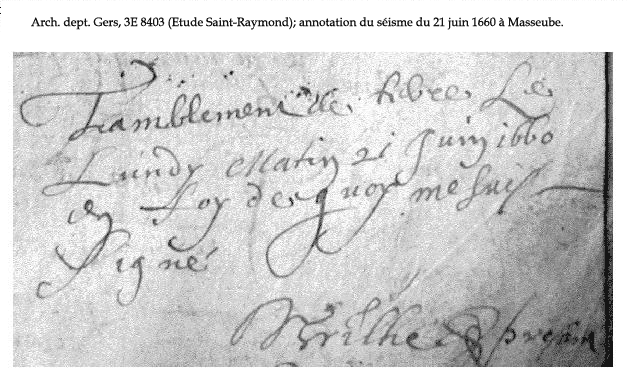 Arch. dept. Gers, 3E 8403 (Etude Saint-Raymond); annotation du séisme du 21 juin 1660 à Masseube.
Tramblement de terre Le
Lundy Matin 21 Juin 1660
en foy de quoy me suis
Signé